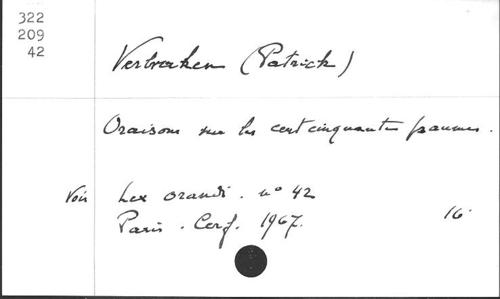 322
209
42
Verbraken (Patrick)
Oraisons sur les cent cinquante psaumes.
Voir Lex orandi. n° 42
Paris. Cerf. 1967. 16°